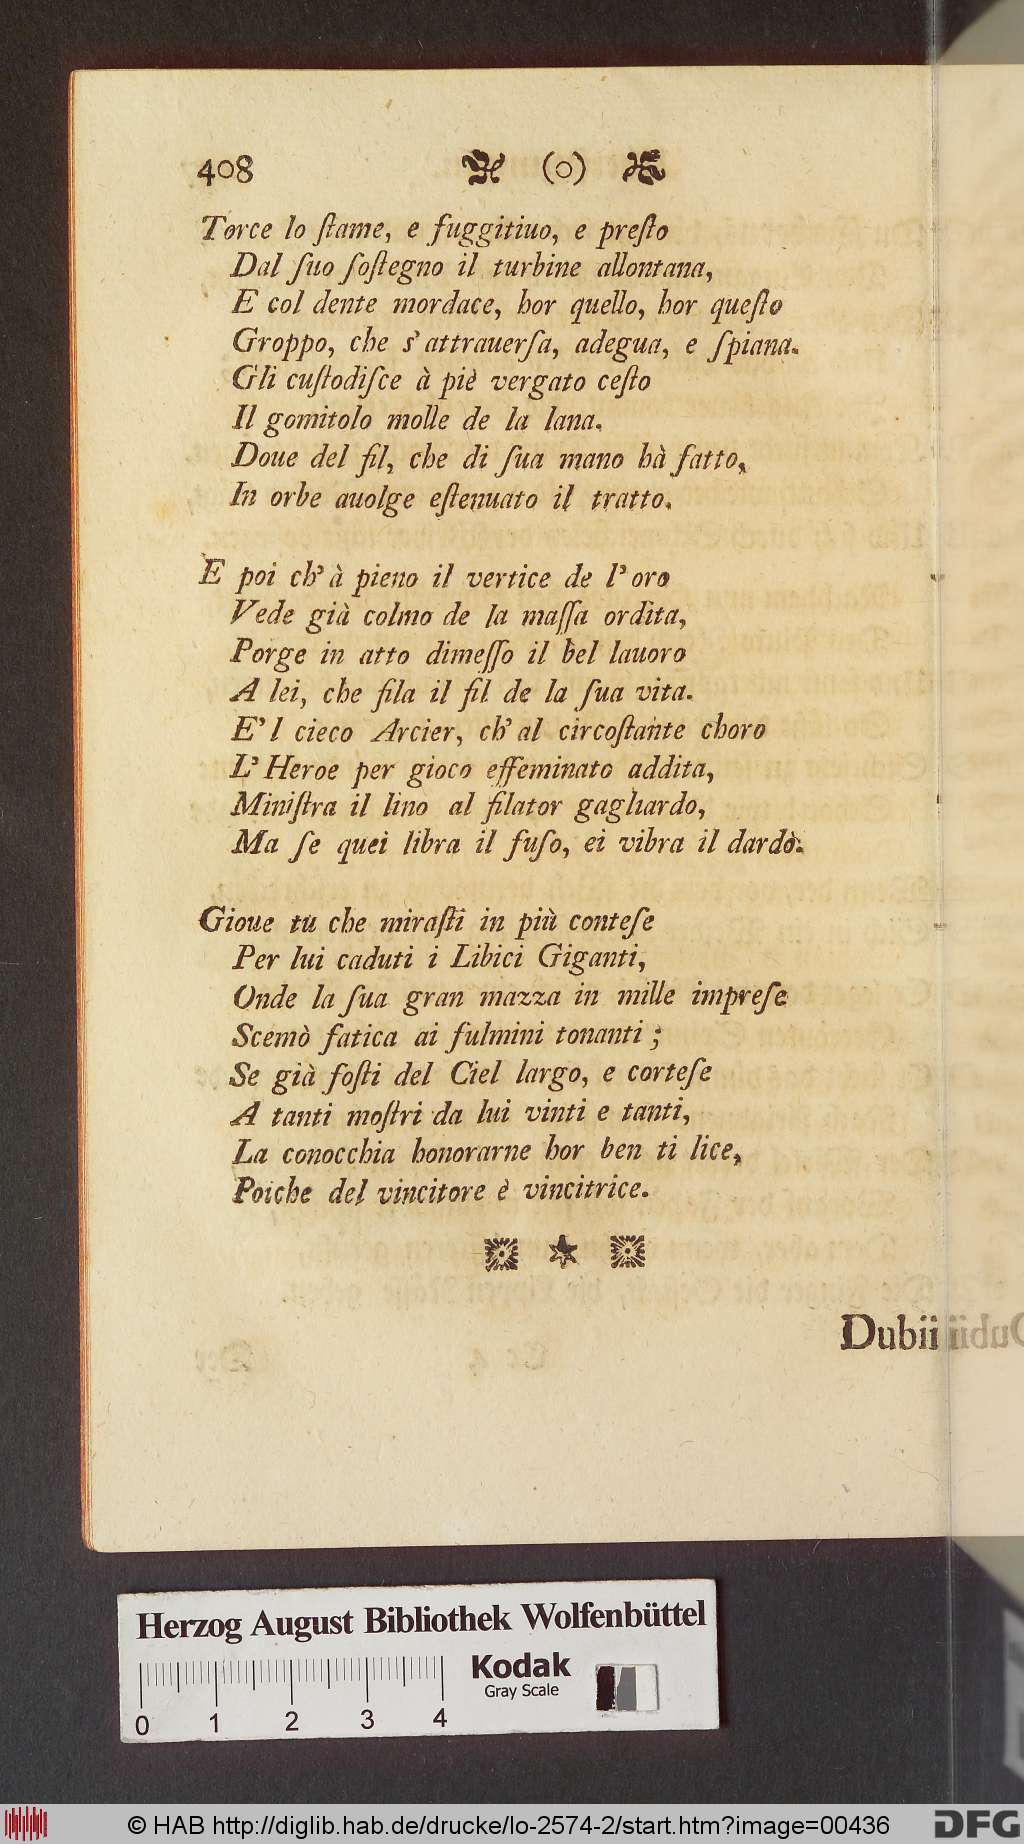 408 (o)
Torce lo ſtame, e fuggitiuo, e preſto
Dal ſuo ſoſtegno il turbine allontana,
E col dente mordace, hor quello, hor queſto
Groppo, che s' attrauerſa, adegua, e ſpiana.
Gli cuſtodiſce à piè vergato ceſto
Il gomitolo molle de la lana.
Doue del fil, che di ſua mano hà fatto,
In orbe auolge eſtenuato il tratto.
E poi ch' à pieno il vertice de l' oro
Vede già colmo de la maſſa ordita,
Porge in atto dimeſſo il bel lauoro
A lei, che fila il fil de la ſua vita.
E' l cieco Arcier, ch' al circoſtante choro
L' Heroe per gioco effeminato addita,
Miniſtra il lino al filator gagliardo,
Ma ſe quei libra il fuſo, ei vibra il dardo.
Gioue tu che miraſti in più conteſe
Per lui caduti i Libici Giganti,
Onde la ſua gran mazza in mille impreſe
Scemò fatica ai fulmini tonanti ;
Se già foſti del Ciel largo, e corteſe
A tanti moſtri da lui vinti e tanti,
La conocchia honorarne hor ben ti lice,
Poiche del vincitore è vincitrice.
Dubii
Herzog August Bibliothek Wolfenbüttel
Kodak
Gray Scale
0 1 2 3 4
© HAB http://diglib.hab.de/drucke/lo-2574-2/start.htm?image=00436
DFG